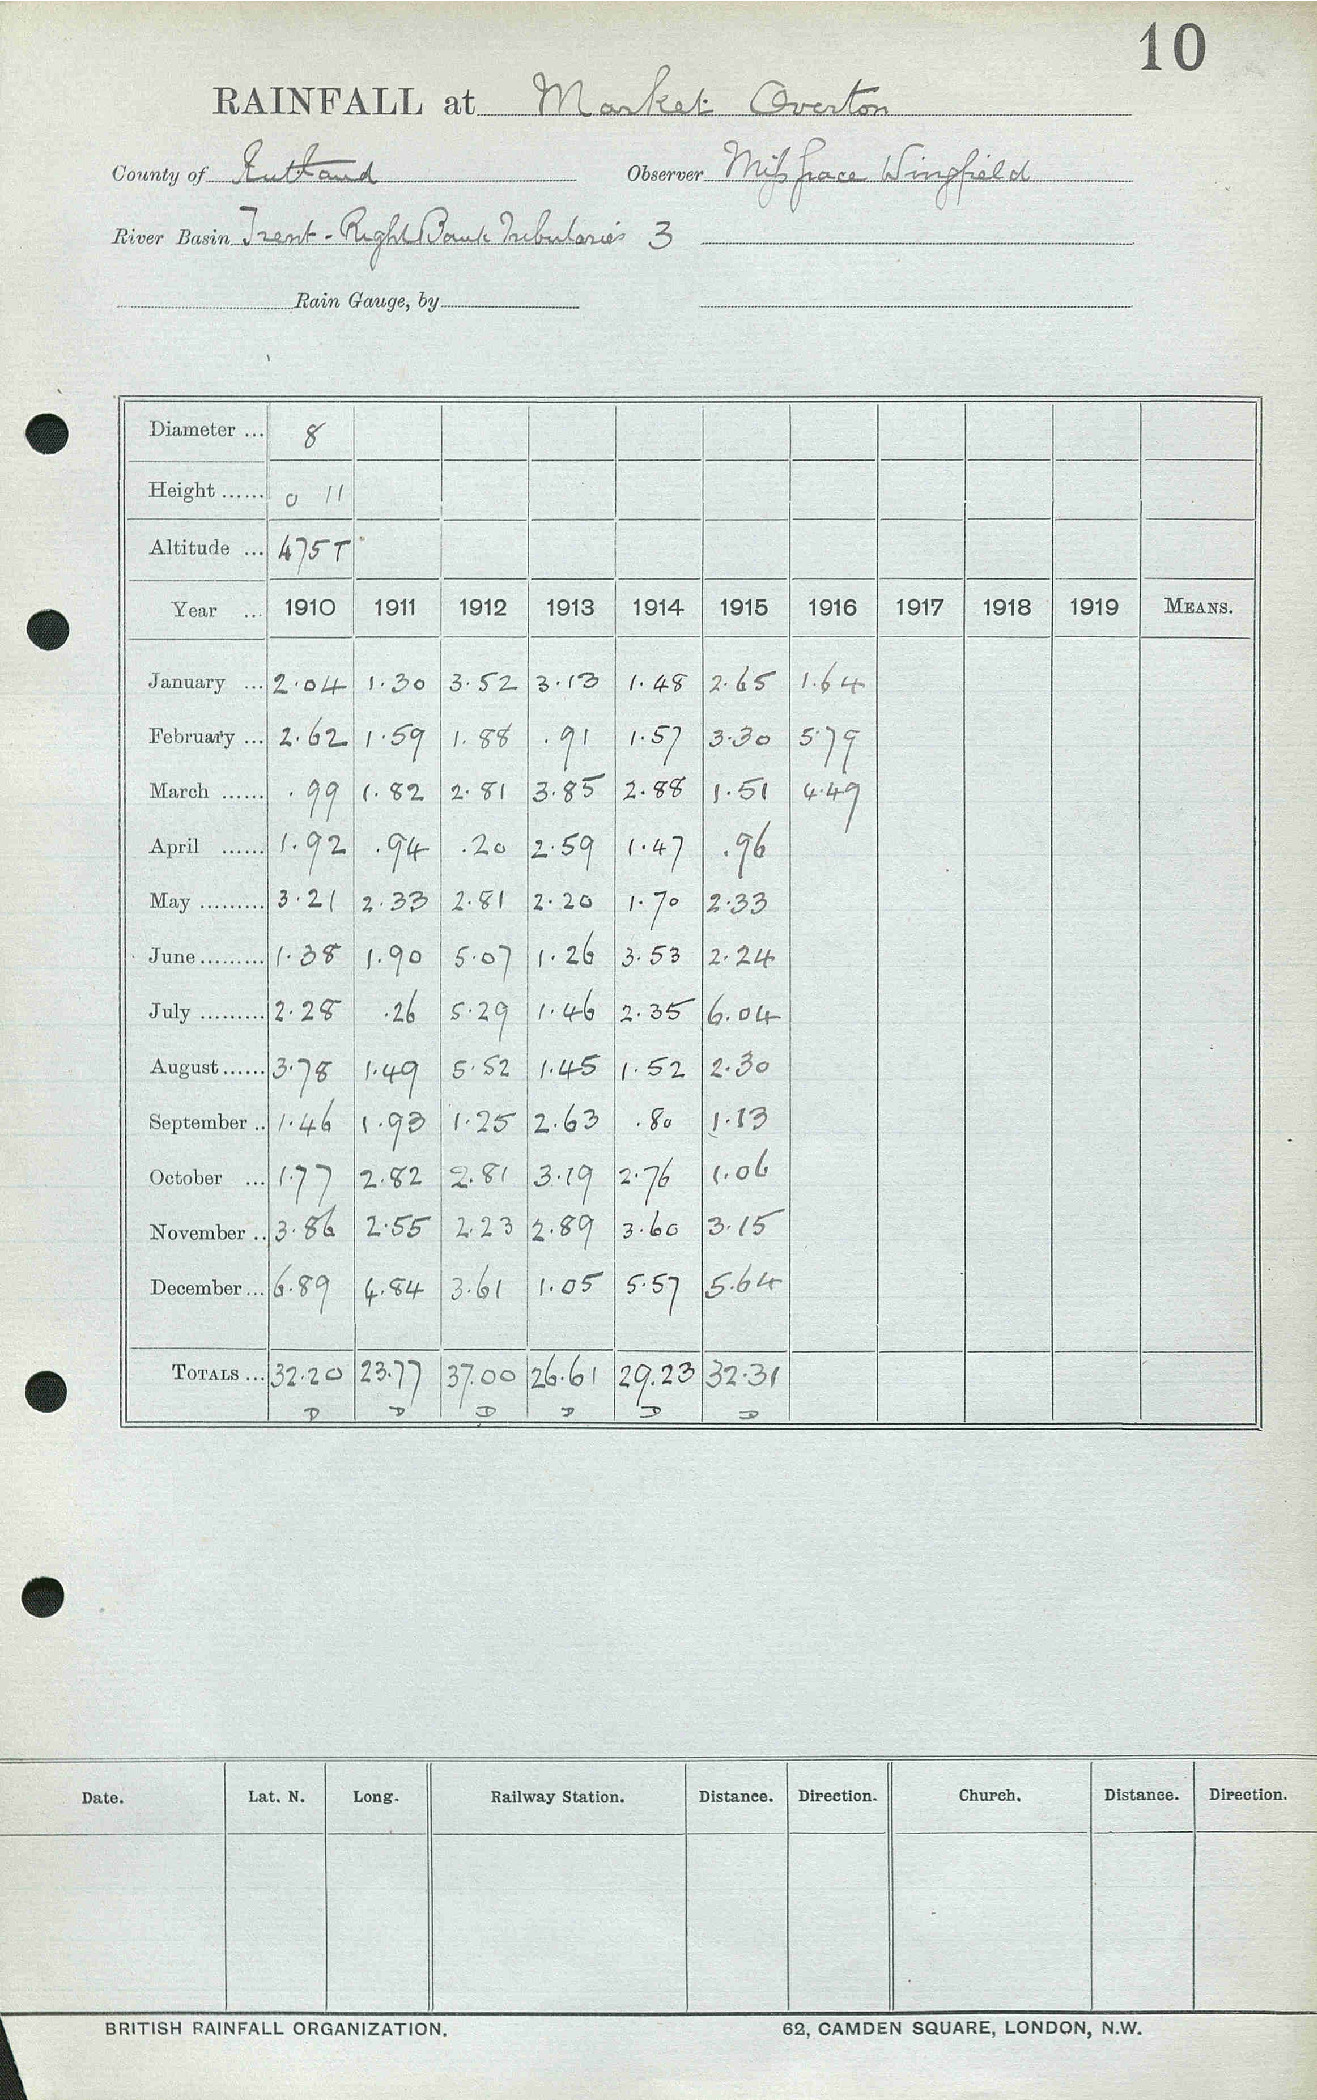 10
RAINFALL at Market Overton
County of Rutland Observer Miss Grace Wingfield
River Basin Trent - Right Bank Tributaries 3
Rain Gauge, by
Diameter ... 8
Height ...... 0 11
Altitude ... 475 T
Year ... 1910 1911 1912 1913 1914 1915 1916 1917 1918 1919 MEANS.
January ... 2.04 1.30 3.52 3.13 1.48 2.65 1.64
February ... 2.62 1.59 1.88 .91 1.57 3.30 5.79
March ...... .99 1.82 2.81 3.85 2.88 1.51 4.49
April ...... 1.92 .94 .20 2.59 1.47 .96
May ......... 3.21 2.33 2.81 2.20 1.70 2.33
June ......... 1.38 1.90 5.07 1.26 3.53 2.24
July ......... 2.28 .26 5.29 1.46 2.35 6.04
August ...... 3.78 1.49 5.52 1.45 1.52 2.30
September .. 1.46 1.93 1.25 2.63 .80 1.13
October ... 1.77 2.82 2.81 3.19 2.76 1.06
November .. 3.86 2.55 2.23 2.89 3.60 3.15
December ... 6.89 4.84 3.61 1.05 5.57 5.64
TOTALS ... 32.20 23.77 37.00 26.61 29.23 32.31
D D D D D D
Date. Lat. N. Long. Railway Station. Distance. Direction. Church. Distance. Direction.
BRITISH RAINFALL ORGANIZATION. 62, CAMDEN SQUARE, LONDON, N.W.